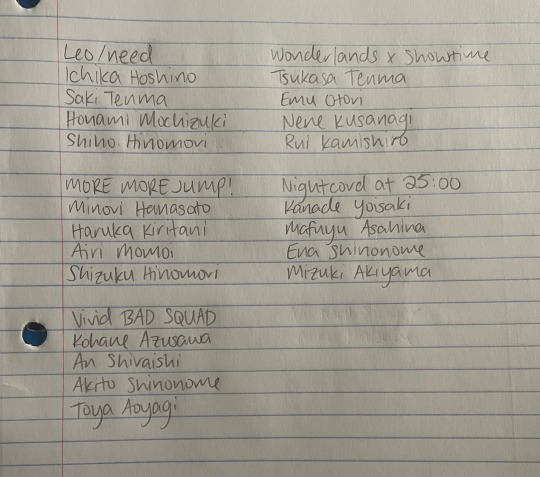 Leo/need
Ichika Hoshino
Saki Tenma
Honami Mochizuki
Shiho Hinomori
Wonderlands x Showtime
Tsukasa Tenma
Emu Otori
Nene Kusanagi
Rui Kamishiro
MORE MORE JUMP!
Minori Hanasato
Haruka Kiritani
Airi Momoi
Shizuku Hinomori
Nightcord at 25:00
Kanade Yoisaki
Mafuyu Asahina
Ena Shinonome
Mizuki Akiyama
Vivid BAD SQUAD
Kohane Azusawa
An Shiraishi
Akito Shinonome
Toya Aoyagi